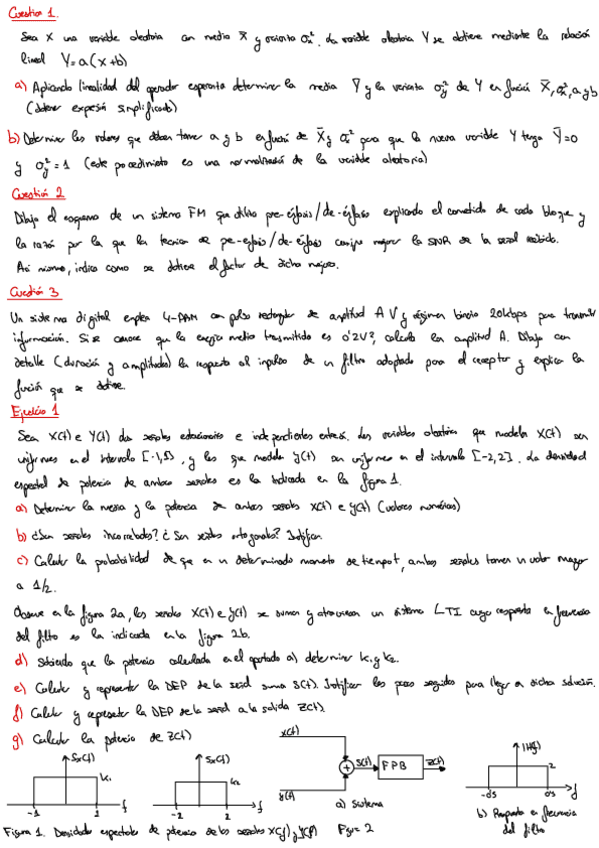 Cuestion 1.
Sea X una variable aleatoria con media X̄ y varianza σx². La variable aleatoria Y se obtiene mediante la relación
lineal Y=a(x+b)
a) Aplicando linealidad del operador esperanza determinar la media Ȳ y la varianza σy² de Y en función X̄, σx², a y b
(obtener expresión simplificada)
b) Determinar los valores que deben tomar a y b en función de X̄ y σx² para que la nueva variable Y tenga Ȳ=0
y σy²=1 (este procedimiento es una normalización de la variable aleatoria)
Cuestión 2
Dibuja el esquema de un sistema FM que utiliza pre-énfasis/de-énfasis explicando el cometido de cada bloque y
la razón por la que la tecnica de pre-énfasis/de-énfasis consigue mejorar la SNR de la señal recibida.
Asi mismo, indica como se obtiene el factor de dicha mejora.
Cuestión 3
Un sistema digital emplea 4-PAM con pulso rectangular de amplitud A V y régimen binario 20kbps para transmitir
información. Si se conoce que la energía media transmitida es 0'2V², calcula la amplitud A. Dibuja con
detalle (duración y amplitudes) la respuesta al impulso de un filtro adaptado para el receptor y explica la
función que se obtiene.
Ejercicio 1
Sean X(t) e Y(t) dos señales estacionarias e independientes entre sí. Las variables aleatorias que modelan X(t) son
uniformes en el intervalo [-1,1], y las que modelan y(t) son uniformes en el intervalo [-2,2]. La densidad
espectral de potencia de ambas señales es la indicada en la figura 1.
a) Determinar la media y la potencia de ambas señales X(t) e Y(t) (valores numéricos)
b) ¿Son señales incorreladas? ¿Son señales ortogonales? Justificar.
c) Calcular la probabilidad de que en un determinado momento de tiempo t, ambas señales tomen un valor mayor
a 1/2.
Observe en la figura 2a, las señales X(t) e y(t) se suman y atraviesan un sistema LTI cuya respuesta en frecuencia
del filtro es la indicada en la figura 2b.
d) Sabiendo que la potencia calculada en el apartado a) determinar K₁ y K₂.
e) Calcular y representar la DEP de la señal suma S(t). Justificar los pasos seguidos para llegar a dicha solución.
f) Calcular y representar la DEP de la señal a la salida Z(t).
g) Calcular la potencia de Z(t)
Sx(f) K₁ -1 1 f
Sx(f) K₂ -2 2 f
x(t) y(t) + S(t) FPB Z(t)
a) Sistema
|H(f)| 2 -0'5 0'5 f
b) Respuesta en frecuencia
del filtro
Figura 1. Densidades espectrales de potencia de las señales X(f) y Y(f)
Figura 2